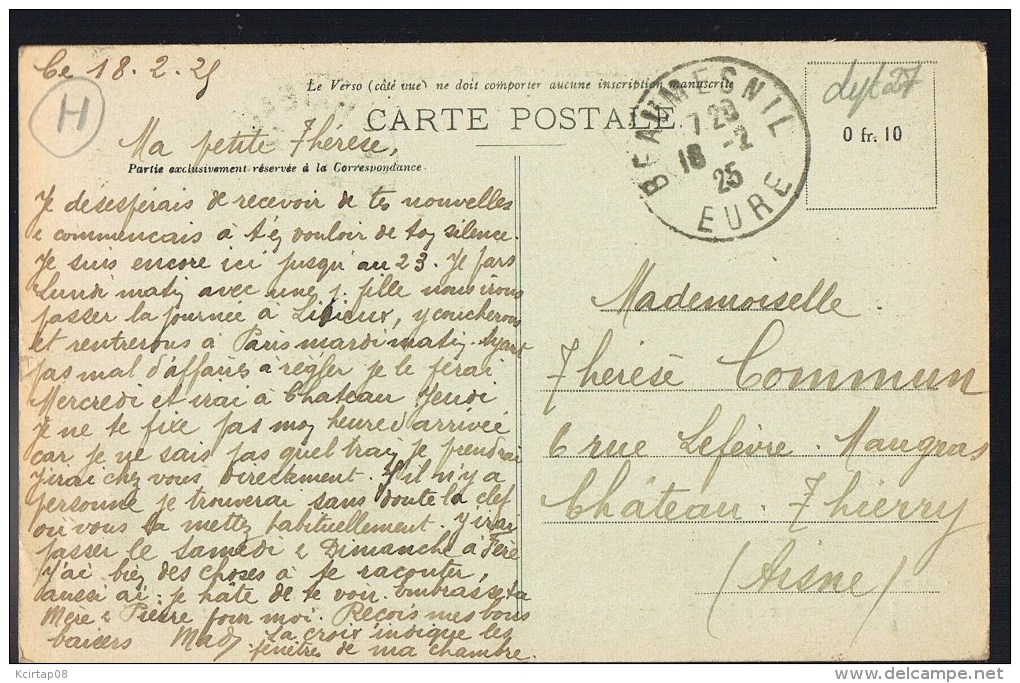 Ce 18.2.25
Le Verso (côté vue) ne doit comporter aucune inscription manuscrite
H
CARTE POSTALE
BEAUMESNIL
7.20
18 -2
25
EURE
0 fr. 10
Ma petite Thérèse,
Partie exclusivement réservée à la Correspondance.
Je desespérais de recevoir de tes nouvelles
e commencais a t'en vouloir de ton silence.
Je suis encore ici jusqu'au 23. Je pars
Lundi matin avec une j. fille nous irons
passer la journée à Lisieux, y coucherons
et rentrerons à Paris mardi matin. Ayant
pas mal d'affaires à régler je le ferai
Mercredi et irai à Chateau Jeudi
Je ne te fixe pas mon heure d'arrivée
car je ne sais pas quel train je prendrai
J'irai chez vous directement. S'il n'y a
personne je trouverai sans doute la clef
où vous la mettez habituellement. J'irai
passer le Samedi e Dimanche à Fère
J'ai bien des choses à te raconter,
aussi ai-je hâte de te voir. Embrasse ta
Mère e Pierre pour moi. Reçois mes bons
baisers Mad La croix indique les
fenêtres de ma chambre.
Mademoiselle
Thérèse Commun
6 rue Lefèvre-Maugras
Château-Thierry
(Aisne)
Kcirtap08
delcampe.net